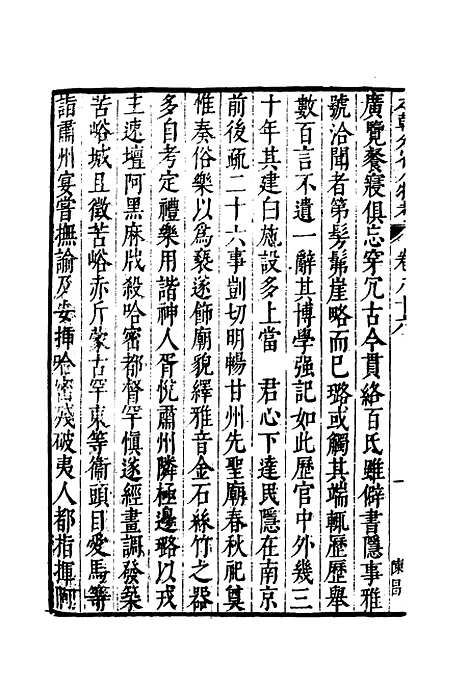 卷八十六
廣覽餐寢俱忘穿冗古今貫絡百氏雖僻書隱事雅
號洽聞者第髣髴崖略而已璐或觸其端輒歷歷舉
數百言不遺一辭其博學强記如此歷官中外幾三
十年其建白施設多上當　君心下達民隱在南京
前後疏二十六事剴切明暢甘州先聖廟春秋祀奠
惟奏俗樂以爲褻遂飾廟貌繹雅音金石絲竹之器
多自考定禮樂用諧神人胥悅肅州隣極邊璐以戎
主速壇阿黑麻戕殺哈密都督罕愼遂經畫調發築
苦峪城且徵苦峪赤斤蒙古罕東等衞頭目愛馬等
詣肅州宴嘗撫諭及安揷哈密殘破夷人都指揮阿